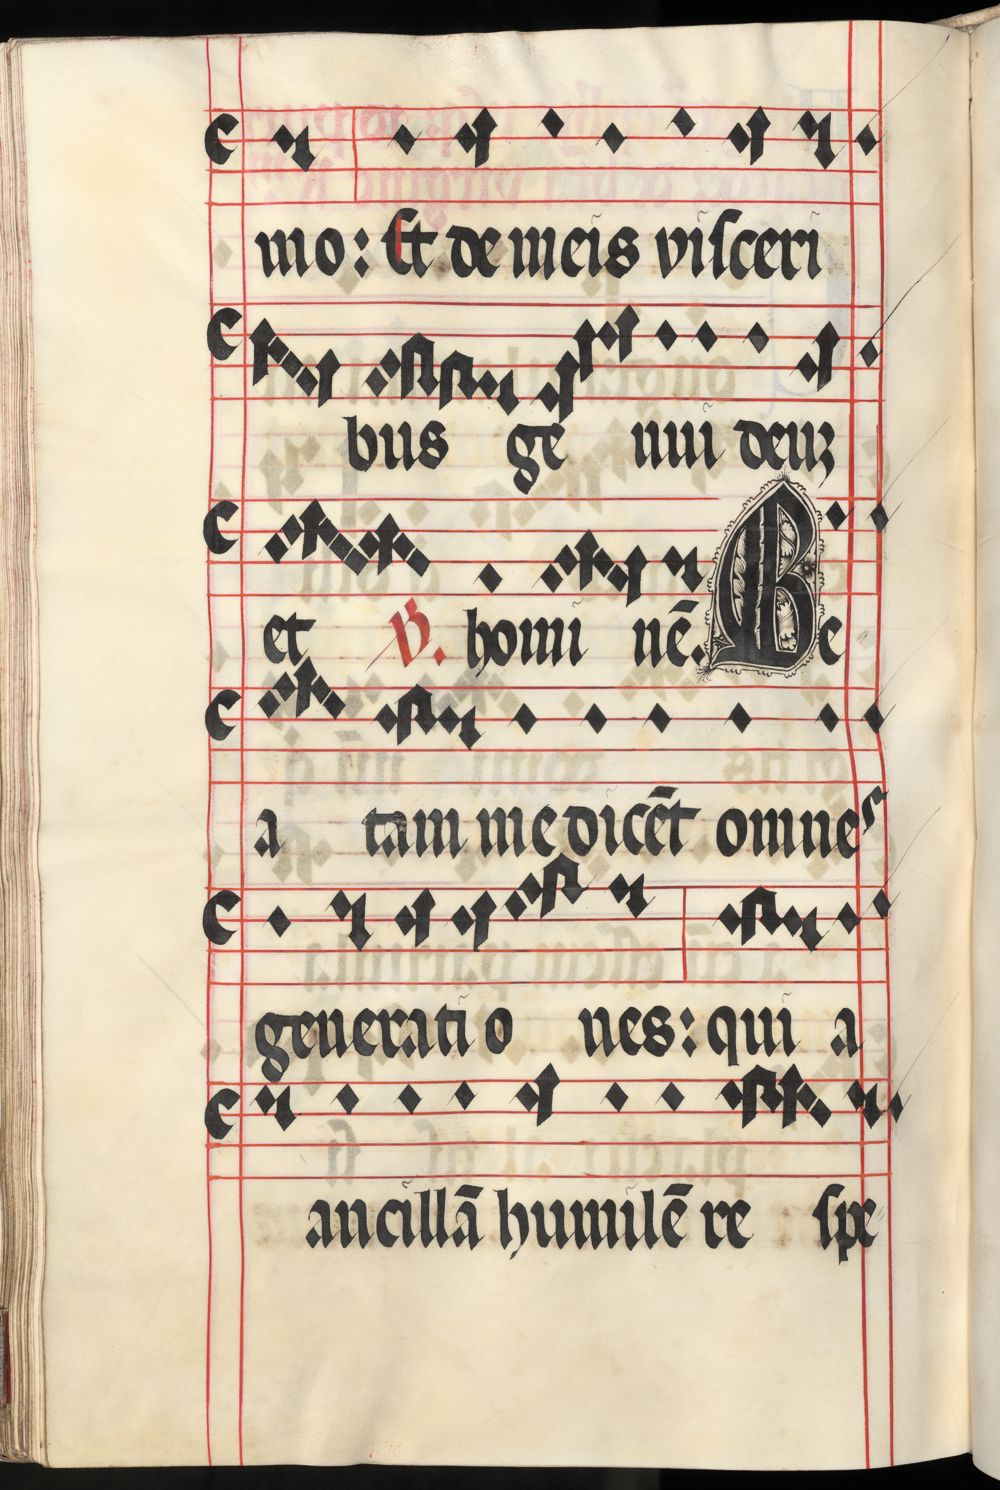 mo: Et de meis visceri
bus ge nui deuʒ
et ℣. homi nē. Be
a tam me dicēt omnes
generati o nes: qui a
ancillā humilē re spe